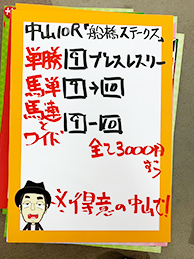 中山10R「船橋ステークス」
単勝 9 プレスレスリー
馬単 9→10
馬連と
ワイド 9-10
全て3000円
ずつ
必ず得意の中山で!